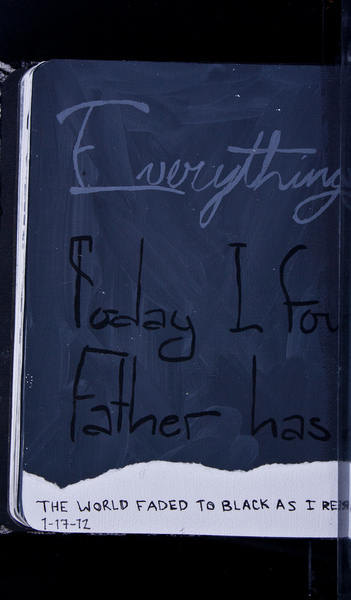 Everything
Today I fou
Father has
THE WORLD FADED TO BLACK AS I RE
1-17-12